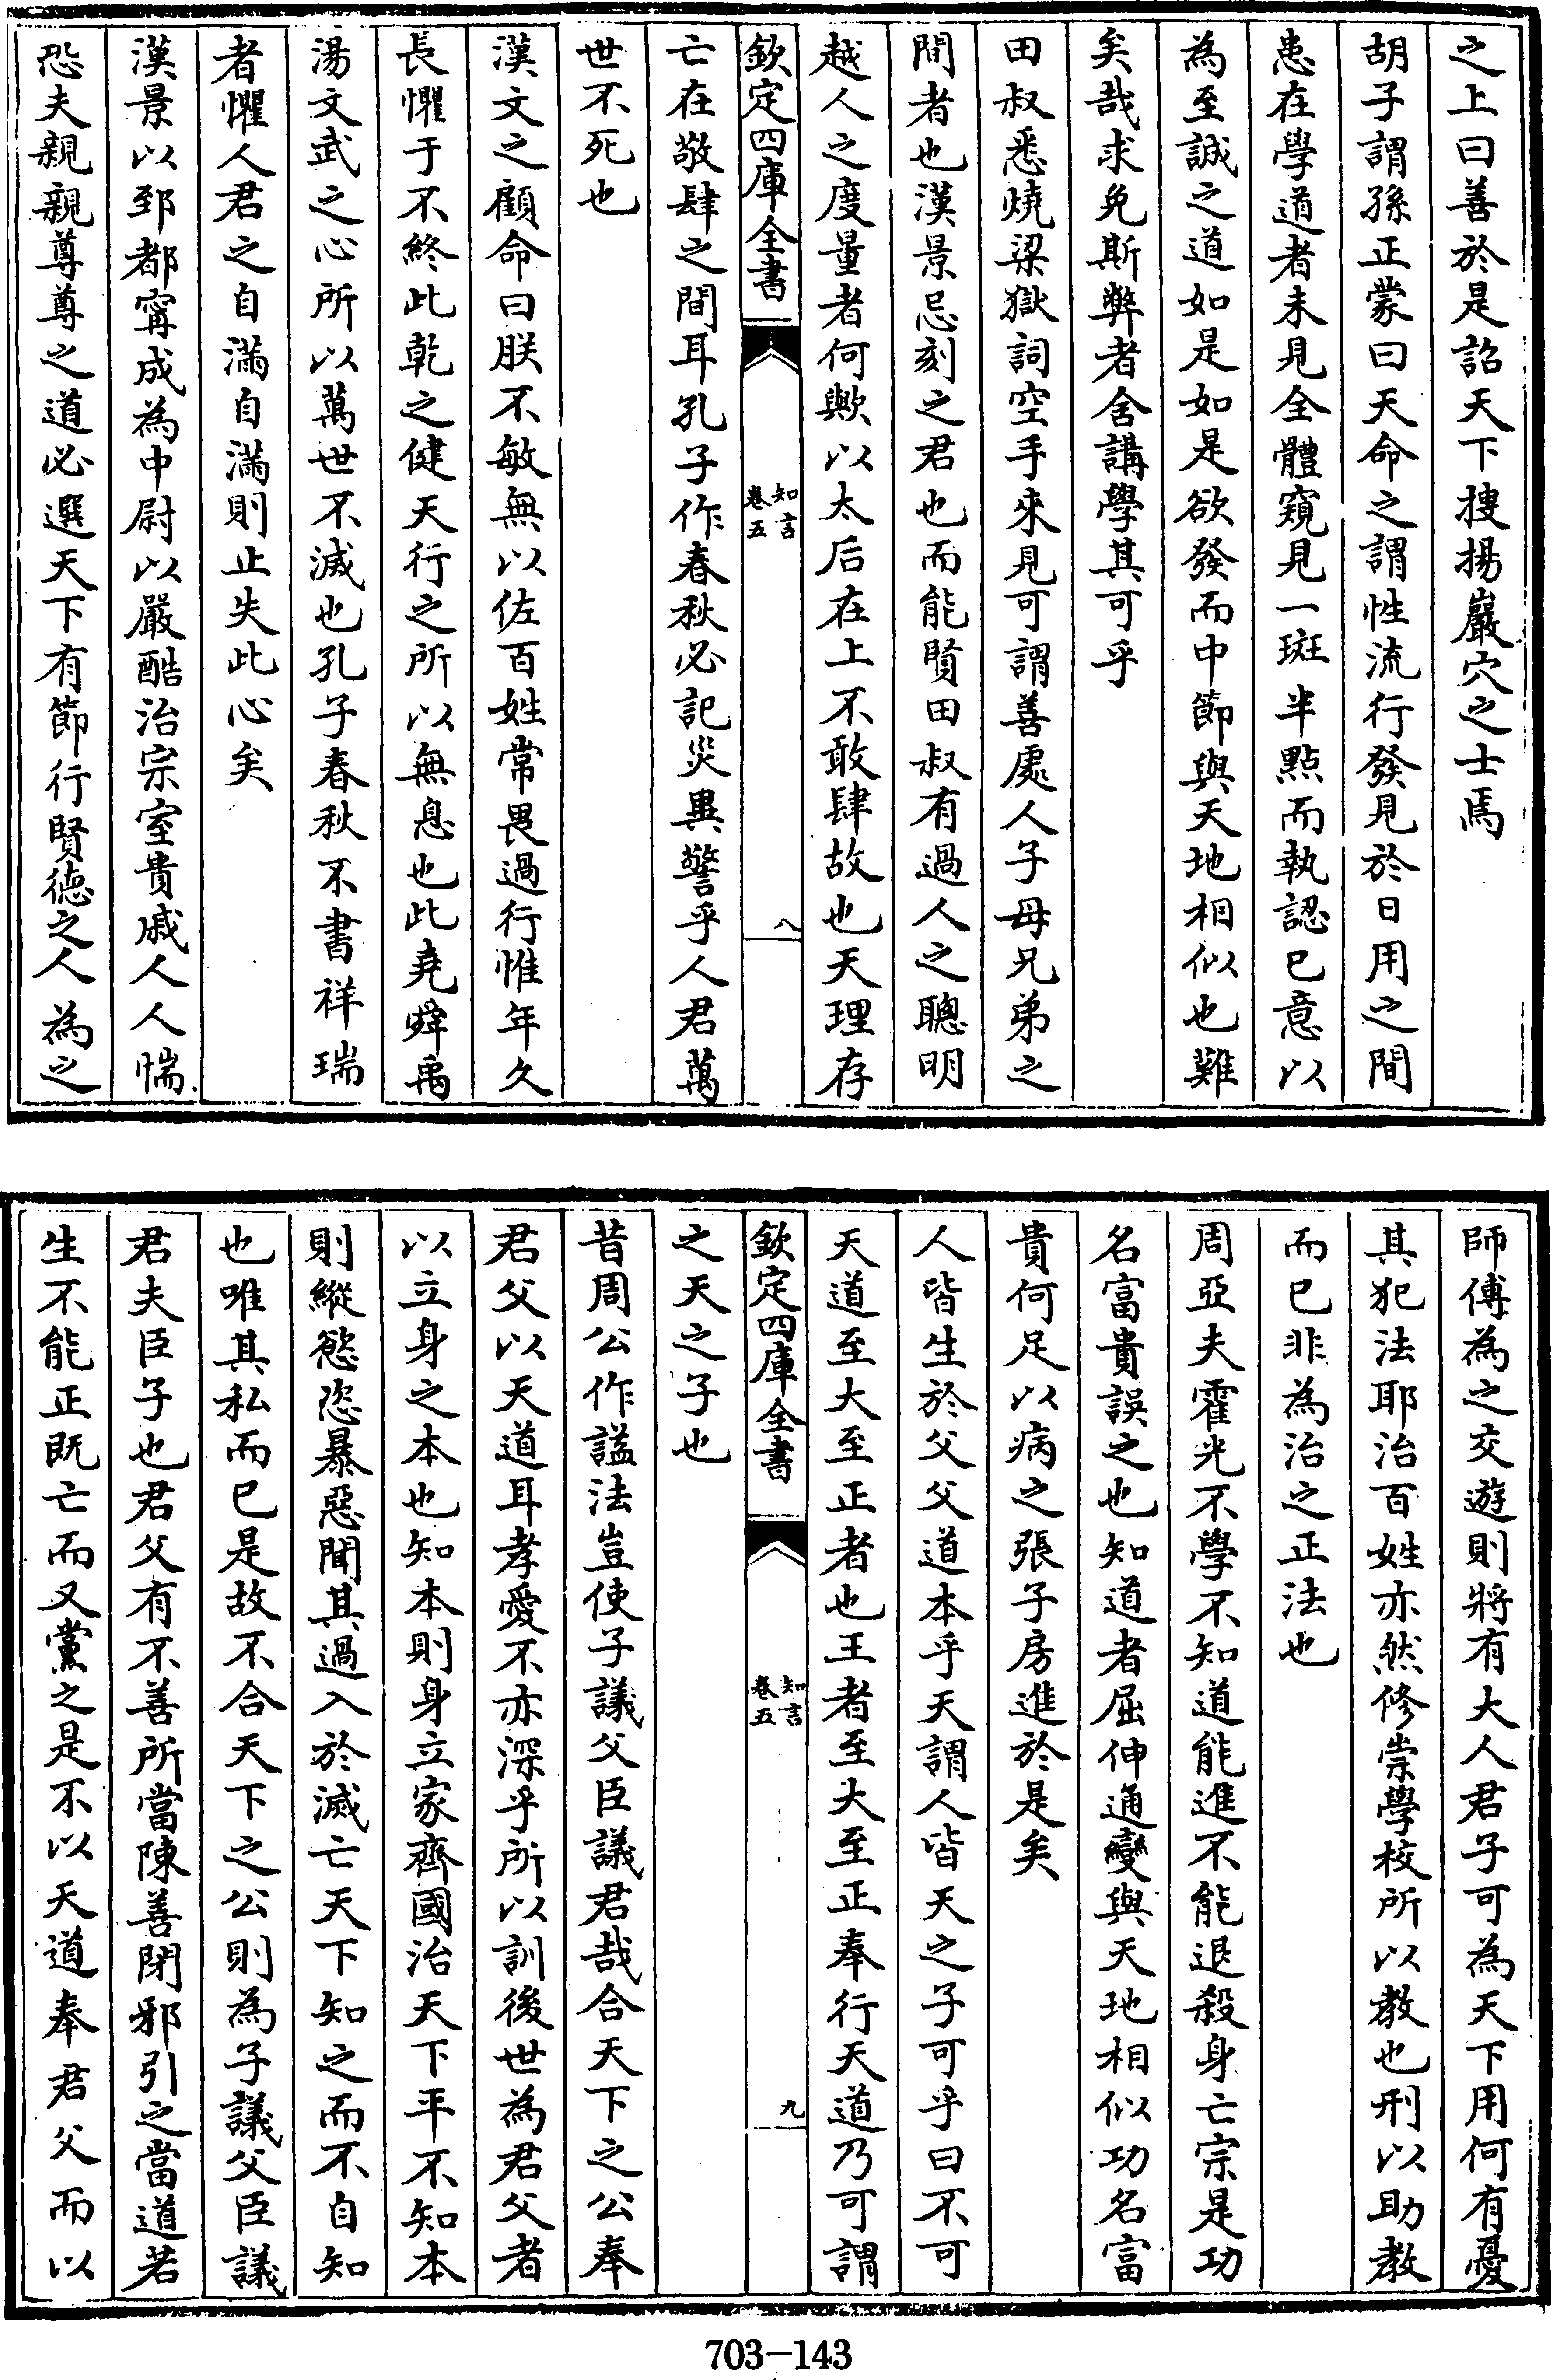 之上曰善於是詔天下搜揚巖穴之士焉
胡子謂孫正蒙曰天命之謂性流行發見於日用之間
患在學道者未見全體窺見一斑半點而執認已意以
為至誠之道如是如是欲發而中節與天地相似也難
矣哉求免斯弊者舍講學其可乎
田叔悉燒梁獄詞空手來見可謂善處人子母兄弟之
間者也漢景忌刻之君也而能賢田叔有過人之聰明
越人之度量者何歟以太后在上不敢肆故也天理存
欽定四庫全書
知言
卷五
八
亡在敬肆之間耳孔子作春秋必記災異警乎人君萬
世不死也
漢文之顧命曰朕不敏無以佐百姓常畏過行惟年久
長懼于不終此乾之健天行之所以無息也此堯舜禹
湯文武之心所以萬世不滅也孔子春秋不書祥瑞
者懼人君之自滿自滿則止失此心矣
漢景以郅都甯成為中尉以嚴酷治宗室貴戚人人惴
恐夫親親尊尊之道必選天下有節行賢徳之人為之
師傅為之交遊則將有大人君子可為天下用何有憂
其犯法耶治百姓亦然修崇學校所以教也刑以助教
而已非為治之正法也
周亞夫霍光不學不知道能進不能退殺身亡宗是功
名富貴誤之也知道者屈伸通變與天地相似功名富
貴何足以病之張子房進於是矣
人皆生於父父道本乎天謂人皆天之子可乎曰不可
天道至大至正者也王者至大至正奉行天道乃可謂
欽定四庫全書
知言
卷五
九
之天之子也
昔周公作諡法豈使子議父臣議君哉合天下之公奉
君父以天道耳孝愛不亦深乎所以訓後世為君父者
以立身之本也知本則身立家齊國治天下平不知本
則縱慾恣暴惡聞其過入於滅亡天下知之而不自知
也唯其私而已是故不合天下之公則為子議父臣議
君夫臣子也君父有不善所當陳善閉邪引之當道若
生不能正既亡而又黨之是不以天道奉君父而以
703-143